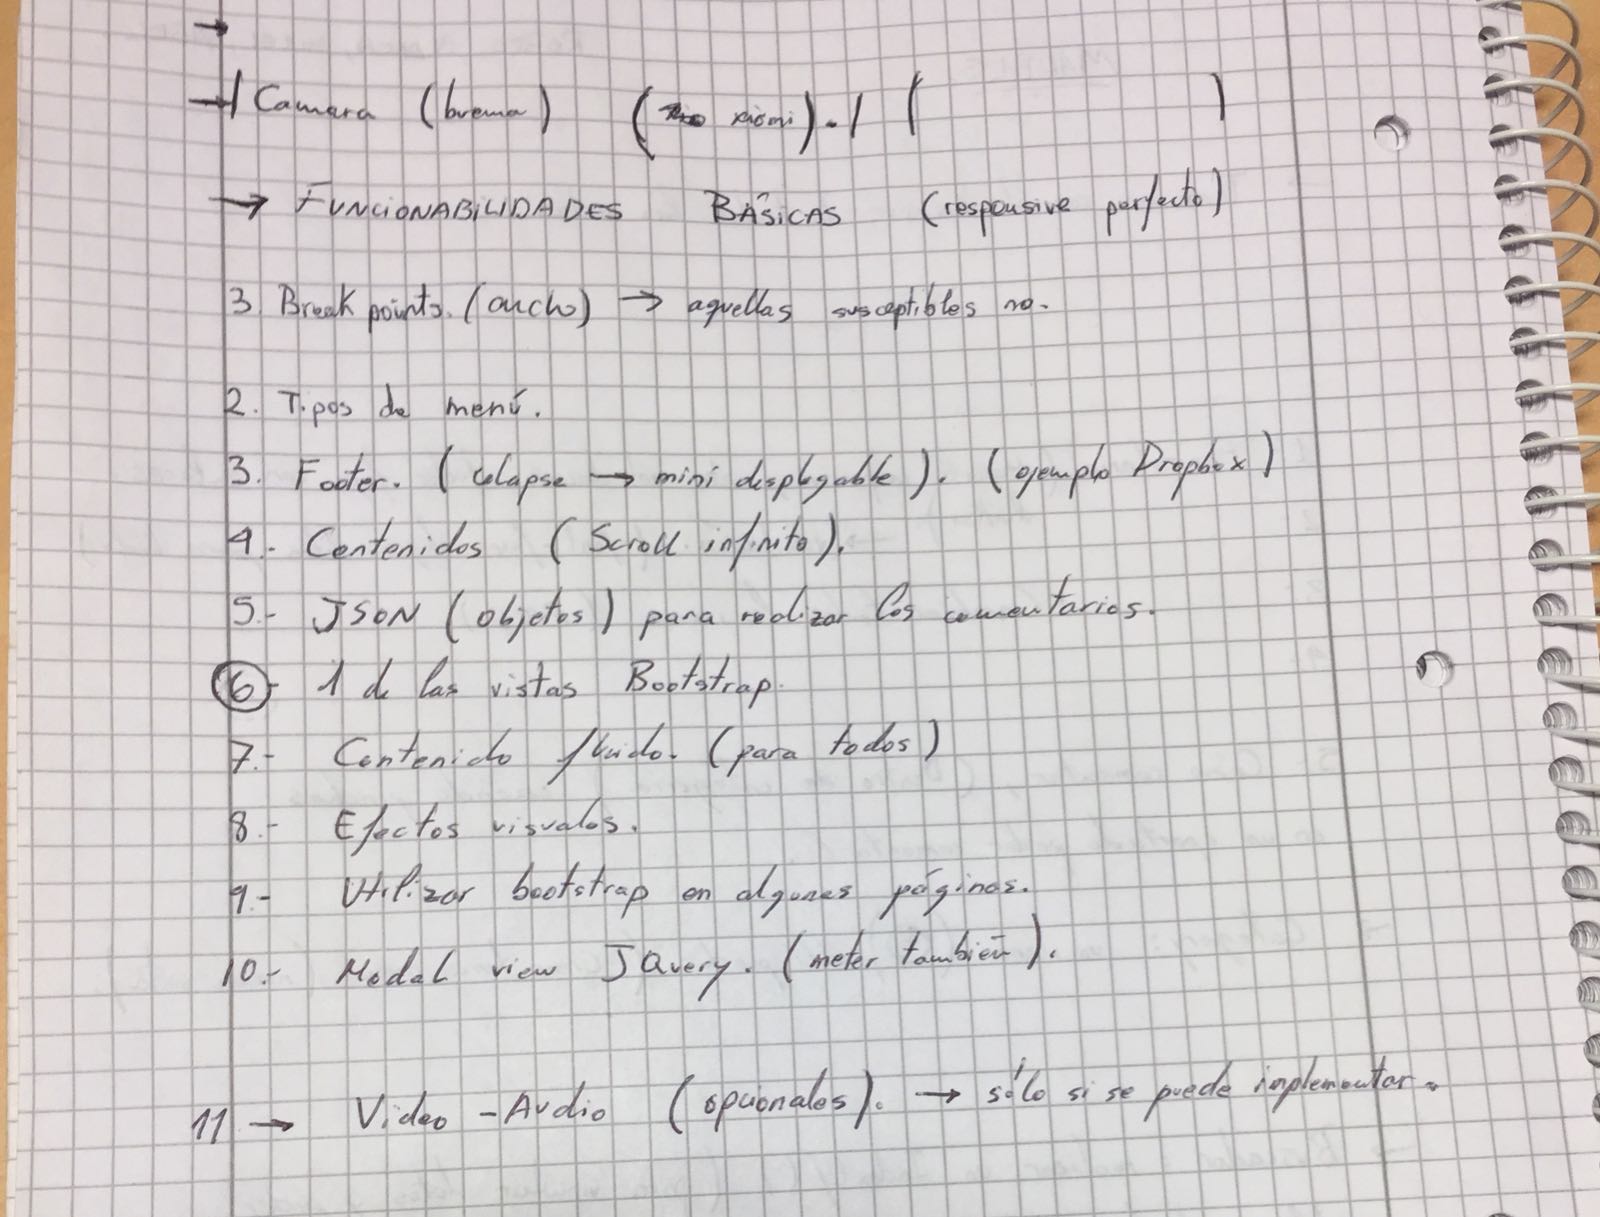 →
→/ Camara (buena) ( xiomi). / ( )
→ FUNCIONABILIDADES BÁSICAS (responsive perfecto)
3 Break points. (ancho) → aquellas susceptibles no.
2. Tipos de menú.
3. Footer. (colapse → mini desplegable). (ejemplo Dropbox)
4.- Contenidos (Scroll infinito).
5.- JSON (objetos) para realizar los comentarios.
6- 1 de las vistas Bootstrap.
7.- Contenido fluido. (para todos)
8.- Efectos visuales.
9.- Utilizar bootstrap en algunas páginas.
10.- Modal view JQuery. (meter también).
11 → Video - Audio (opcionales). → sólo si se puede implementar.